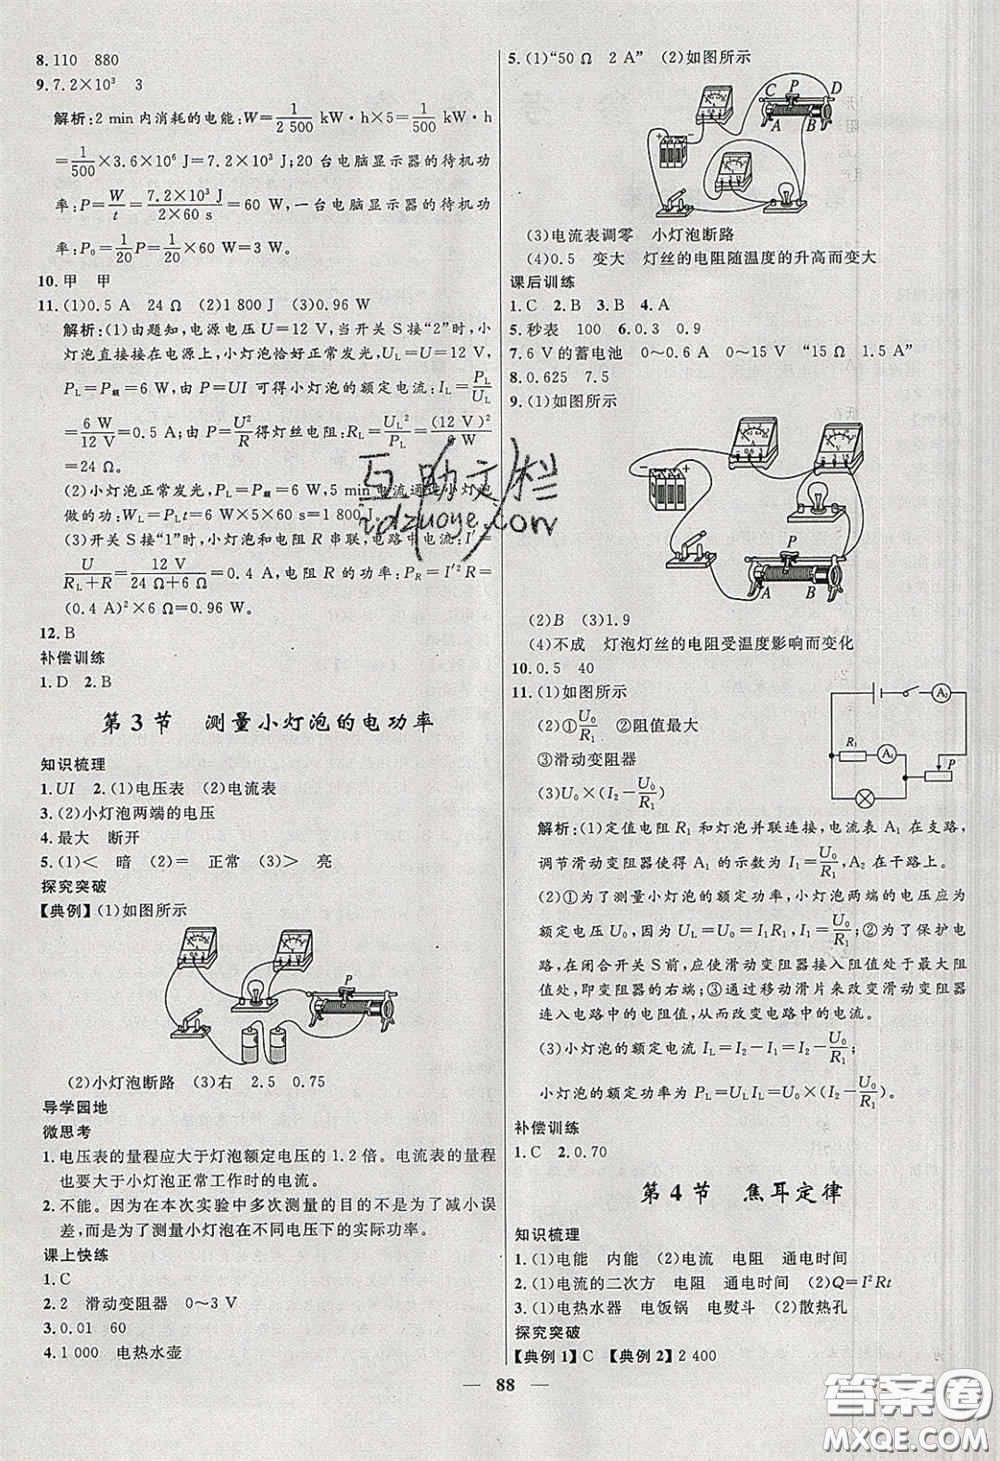 8.110　880
9.7.2×10³　3
解析:2 min内消耗的电能:W=1/2 500 kW·h×5=1/500 kW·h
=1/500×3.6×10⁶ J=7.2×10³ J;20台电脑显示器的待机功
率:P=W/t=7.2×10³ J/2×60 s=60 W,一台电脑显示器的待机功
率:P₀=1/20P=1/20×60 W=3 W。
10.甲　甲
11.(1)0.5 A　24 Ω　(2)1 800 J　(3)0.96 W
解析:(1)由题知,电源电压U=12 V,当开关S接“2”时,小
灯泡直接接在电源上,小灯泡恰好正常发光,U_L=U=12 V,
P_L=P额=6 W,由P=UI可得小灯泡的额定电流:I_L=P_L/U_L
=6 W/12 V=0.5 A;由P=U²/R得灯丝电阻:R_L=U_L²/P_L=(12 V)²/6 W
=24 Ω。
(2)小灯泡正常发光,P_L=6 W,5 min电流通过小灯泡
做的功:W_L=P_Lt=6 W×5×60 s=1 800 J。
(3)开关S接“1”时,小灯泡和电阻R串联,电路中电流:I′=
U/R_L+R=12 V/24 Ω+6 Ω=0.4 A,电阻R的功率:P_R=I′²R=
(0.4 A)²×6 Ω=0.96 W。
12.B
补偿训练
1.D　2.B
第3节　测量小灯泡的电功率
知识梳理
1.UI　2.(1)电压表　(2)电流表
3.(2)小灯泡两端的电压
4.最大　断开
5.(1)<　暗　(2)=　正常　(3)>　亮
探究突破
【典例】(1)如图所示
P
(2)小灯泡断路　(3)右　2.5　0.75
导学园地
微思考
1.电压表的量程应大于灯泡额定电压的1.2倍。电流表的量程
也要大于小灯泡正常工作时的电流。
2.不能。因为在本次实验中多次测量的目的不是为了减小误
差,而是为了测量小灯泡在不同电压下的实际功率。
课上快练
1.C
2.2　滑动变阻器　0～3 V
3.0.01　60
4.1 000　电热水壶
5.(1)“50 Ω　2 A”　(2)如图所示
C P D
A B
(3)电流表调零　小灯泡断路
(4)0.5　变大　灯丝的电阻随温度的升高而变大
课后训练
1.C　2.B　3.B　4.A
5.秒表　100　6.0.3　0.9
7.6 V的蓄电池　0～0.6 A　0～15 V　“15 Ω　1.5 A”
8.0.625　7.5
9.(1)如图所示
P
A B
(2)B　(3)1.9
(4)不成　灯泡灯丝的电阻受温度影响而变化
10.0.5　40
11.(1)如图所示
(2)①U₀/R₁　②阻值最大
③滑动变阻器
(3)U₀×(I₂−U₀/R₁)
A₂
R₁ A₁ P
解析:(1)定值电阻R₁和灯泡并联连接,电流表A₁在支路,
调节滑动变阻器使得A₁的示数为I₁=U₀/R₁,A₂在干路上。
(2)①为了测量小灯泡的额定功率,小灯泡两端的电压应为
额定电压U₀,因为U_L=U₀=I₁R₁,I₁=U₀/R₁;②为了保护电
路,在闭合开关S前,应使滑动变阻器接入阻值处于最大阻
值处,即变阻器的右端;③通过移动滑片来改变滑动变阻器
连入电路中的电阻值,从而改变电路中的电流。
(3)小灯泡的额定电流I_L=I₂−I₁=I₂−U₀/R₁;
小灯泡的额定功率为P_L=U_LI_L=U₀×(I₂−U₀/R₁)。
补偿训练
1.C　2.0.70
第4节　焦耳定律
知识梳理
1.(1)电能　内能　(2)电流　电阻　通电时间
2.(1)电流的二次方　电阻　通电时间　(2)Q=I²Rt
3.(1)电热水器　电饭锅　电熨斗　(2)散热孔
探究突破
【典例1】C　【典例2】2 400
88
互助文栏
idzuoye.com
答案圈
MXQE.COM